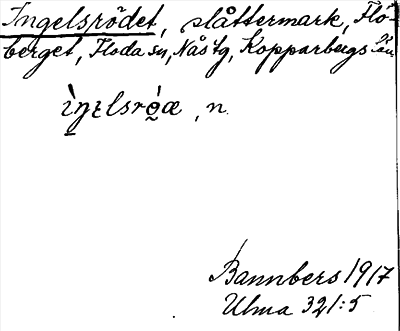 Ingelsrödet, slåttermark, Flo-
berget, Floda sn, Nås tg, Kopparbergs län
ìŋɛlsrò̤æ, n.
Bannbers 1917
Ulma 321:5